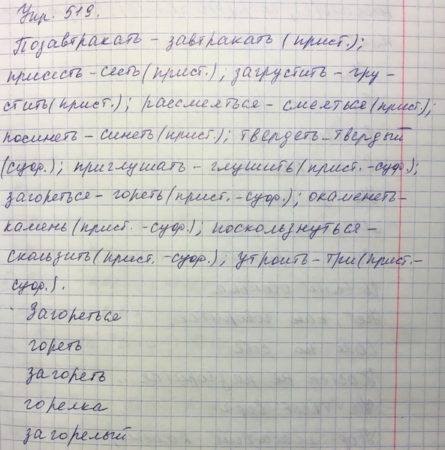 Упр. 519.
Позавтракать - завтракать (прист.);
присесть - сесть (прист.); загрустить - гру-
стить (прист.); рассмеяться - смеяться (прист.);
посинеть - синеть (прист.); твердеть - твердый
(суф.); приглушать - глушить (прист.-суф.);
загореться - гореть (прист.-суф.); окаменеть -
камень (прист.-суф.); поскользнуться -
скользить (прист.-суф.); утроить - три (прист.-
суф.).
Загореться
гореть
загореть
горелка
загорелый